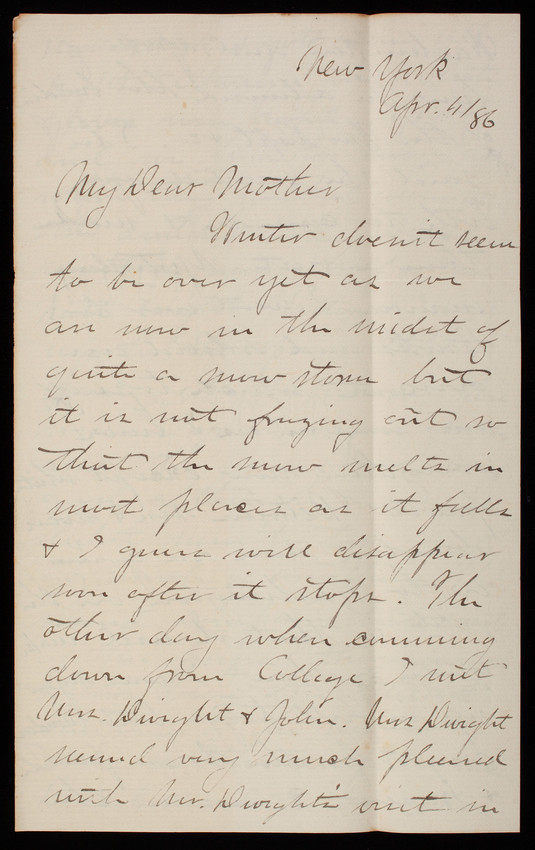 New York
Apr. 4/86
My Dear Mother
Winter doesn't seem
to be over yet as we
are now in the midst of
quite a snow storm but
it is not frezing out so
that the snow melts in
most places as it falls
& I guess will disappear
soon after it stops. The
other day when comming
down from College I met
Mrs. Dwight & John. Mrs Dwight
seemed very much pleased
with Mr. Dwight's visit in